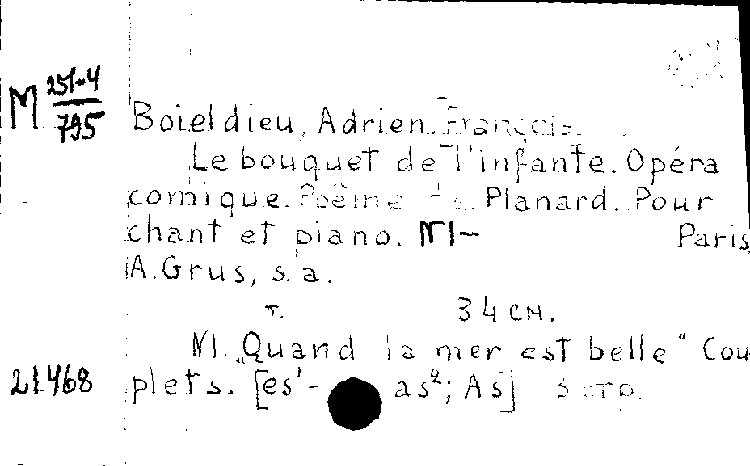 M 251-4
795
Boieldieu, Adrien François.
Le bouquet de l'infante. Opéra
comique. Poëme de Planard. Pour
chant et piano. N1- Paris,
A. Grus, s. a.
т. 34 см.
N1. „Quand la mer est belle" Cou
21468 plets. [es¹- as²; As] 3 стр.